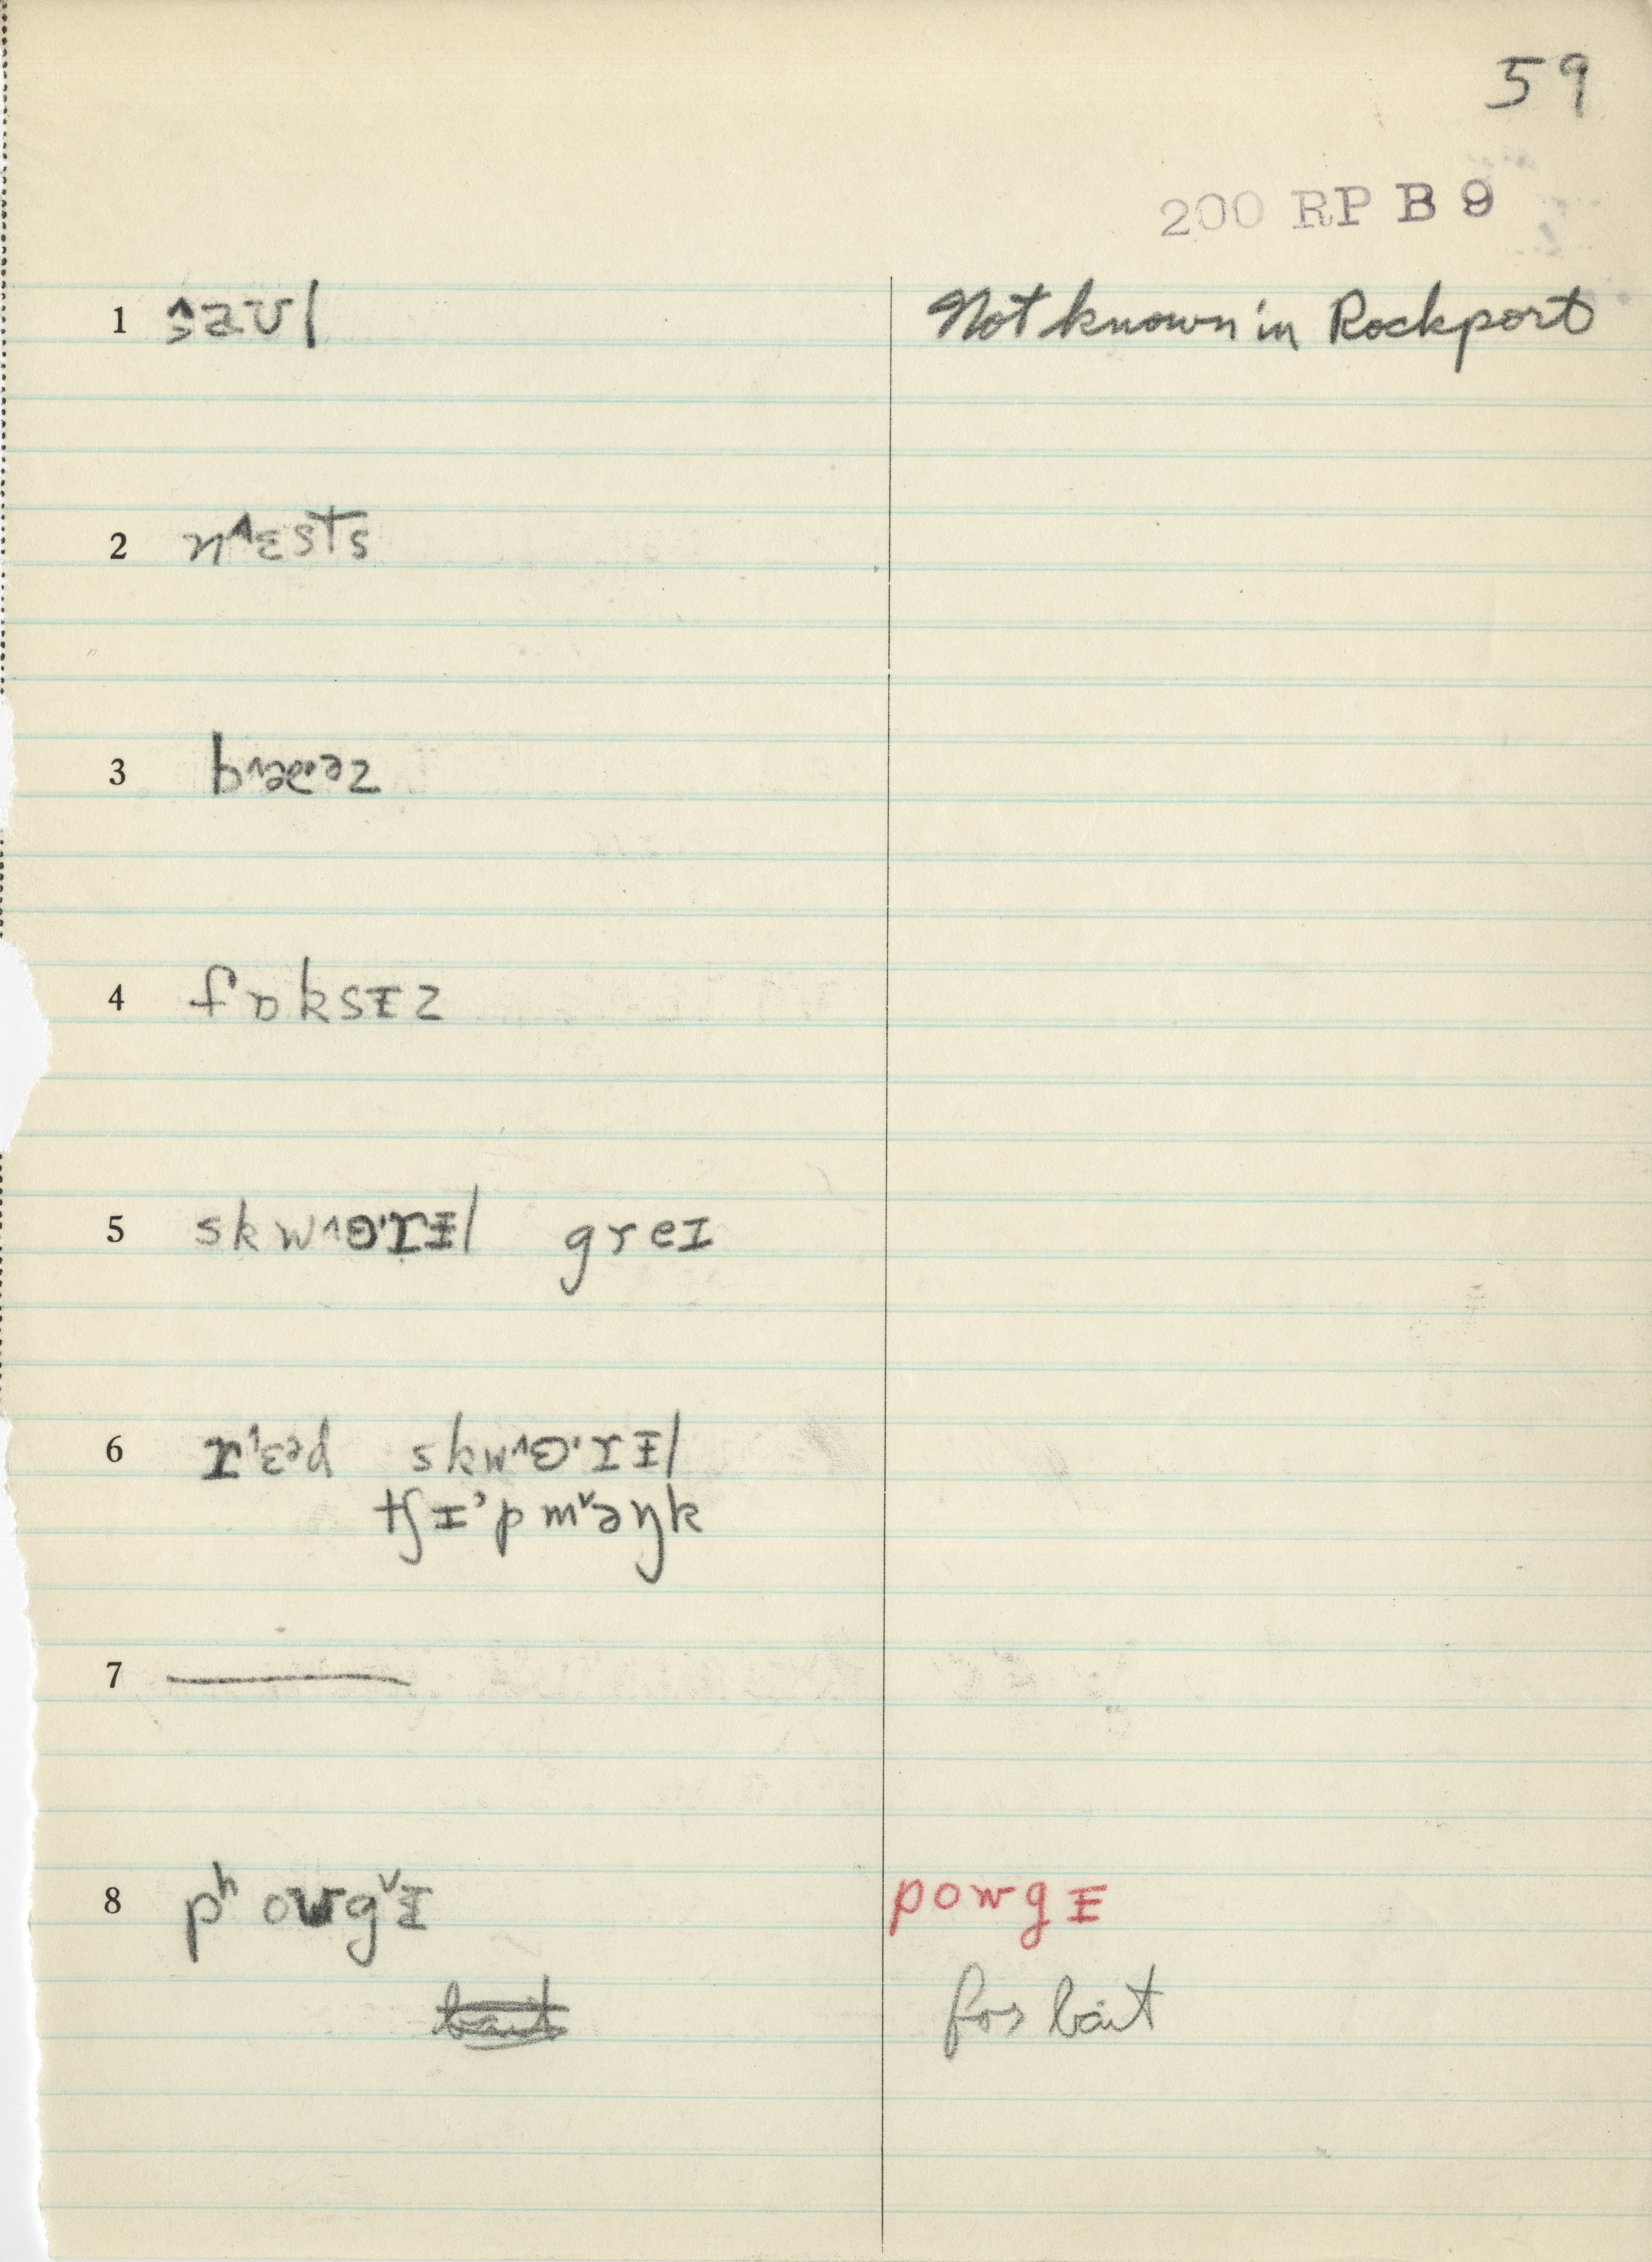 59
200 RP B 9
1 ʂaʊl Not known in Rockport
2 n˄ɛsts
3 b˄æə˞z
4 fɒksɪz
5 skw˄ɵ·rɨl greɪ
6 r˄ɛᵊd skw˄ɵ·rɨl
tʃɪ'p m˅əŋk
7 ———
8 pʰowg˅ɨ powgɨ
bait for bait